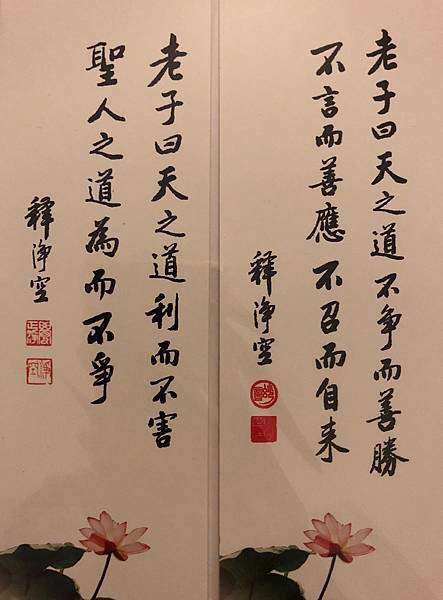 老子曰天之道不争而善勝
不言而善應不召而自来
釋淨空
老子曰天之道利而不害
聖人之道為而不爭
釋淨空